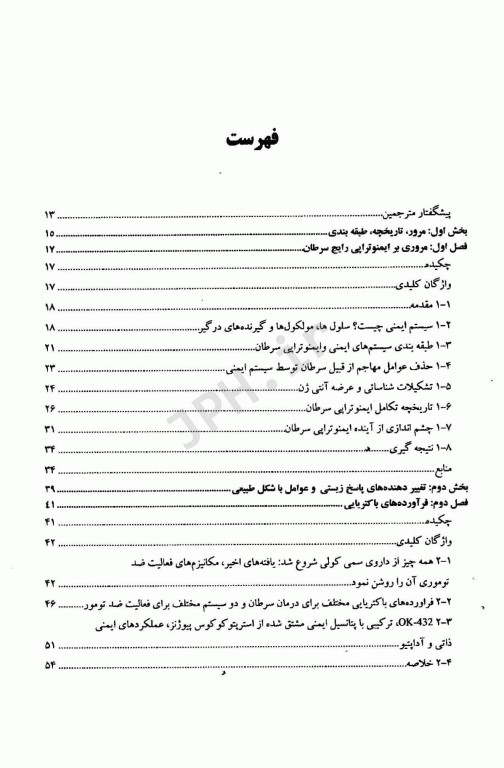 فهرست
پیشگفتار مترجمین ........ ۱۳
بخش اول: مرور، تاریخچه، طبقه بندی ........ ۱۵
فصل اول: مروری بر ایمنوتراپی رایج سرطان ........ ۱۷
چکیده ........ ۱۷
واژگان کلیدی ........ ۱۷
۱-۱ مقدمه ........ ۱۸
۱-۲ سیستم ایمنی چیست؟ سلول ها، مولکول‌ها و گیرنده‌های درگیر ........ ۱۸
۱-۳ طبقه بندی سیستم‌های ایمنی وایمنوتراپی سرطان ........ ۲۱
۱-۴ حذف عوامل مهاجم از قبیل سرطان توسط سیستم ایمنی ........ ۲۳
۱-۵ تشکیلات شناسائی و عرضه آنتی ژن ........ ۲۴
۱-۶ تاریخچه تکامل ایمنوتراپی سرطان ........ ۲۶
۱-۷ چشم اندازی از آینده ایمنوتراپی سرطان ........ ۳۱
۱-۸ نتیجه گیری ........ ۳۴
منابع ........ ۳۴
بخش دوم: تغییر دهنده‌های پاسخ زیستی و عوامل با شکل طبیعی ........ ۳۹
فصل دوم: فرآورده‌های باکتریایی ........ ۴۱
چکیده ........ ۴۱
واژگان کلیدی ........ ۴۲
۲-۱ همه چیز از داروی سمی کولی شروع شد: یافته‌های اخیر، مکانیزم‌های فعالیت ضد
توموری آن را روشن نمود ........ ۴۲
۲-۲ فراورده‌های باکتریایی مختلف برای درمان سرطان و دو سیستم مختلف برای فعالیت ضد تومور ........ ۴۶
۲-۳ OK-432، ترکیبی با پتانسیل ایمنی مشتق شده از استرپتوکوکوس پیوژنز، عملکردهای ایمنی
ذاتی و آداپتیو ........ ۵۱
۲-۴ خلاصه ........ ۵۴
JPH.ir